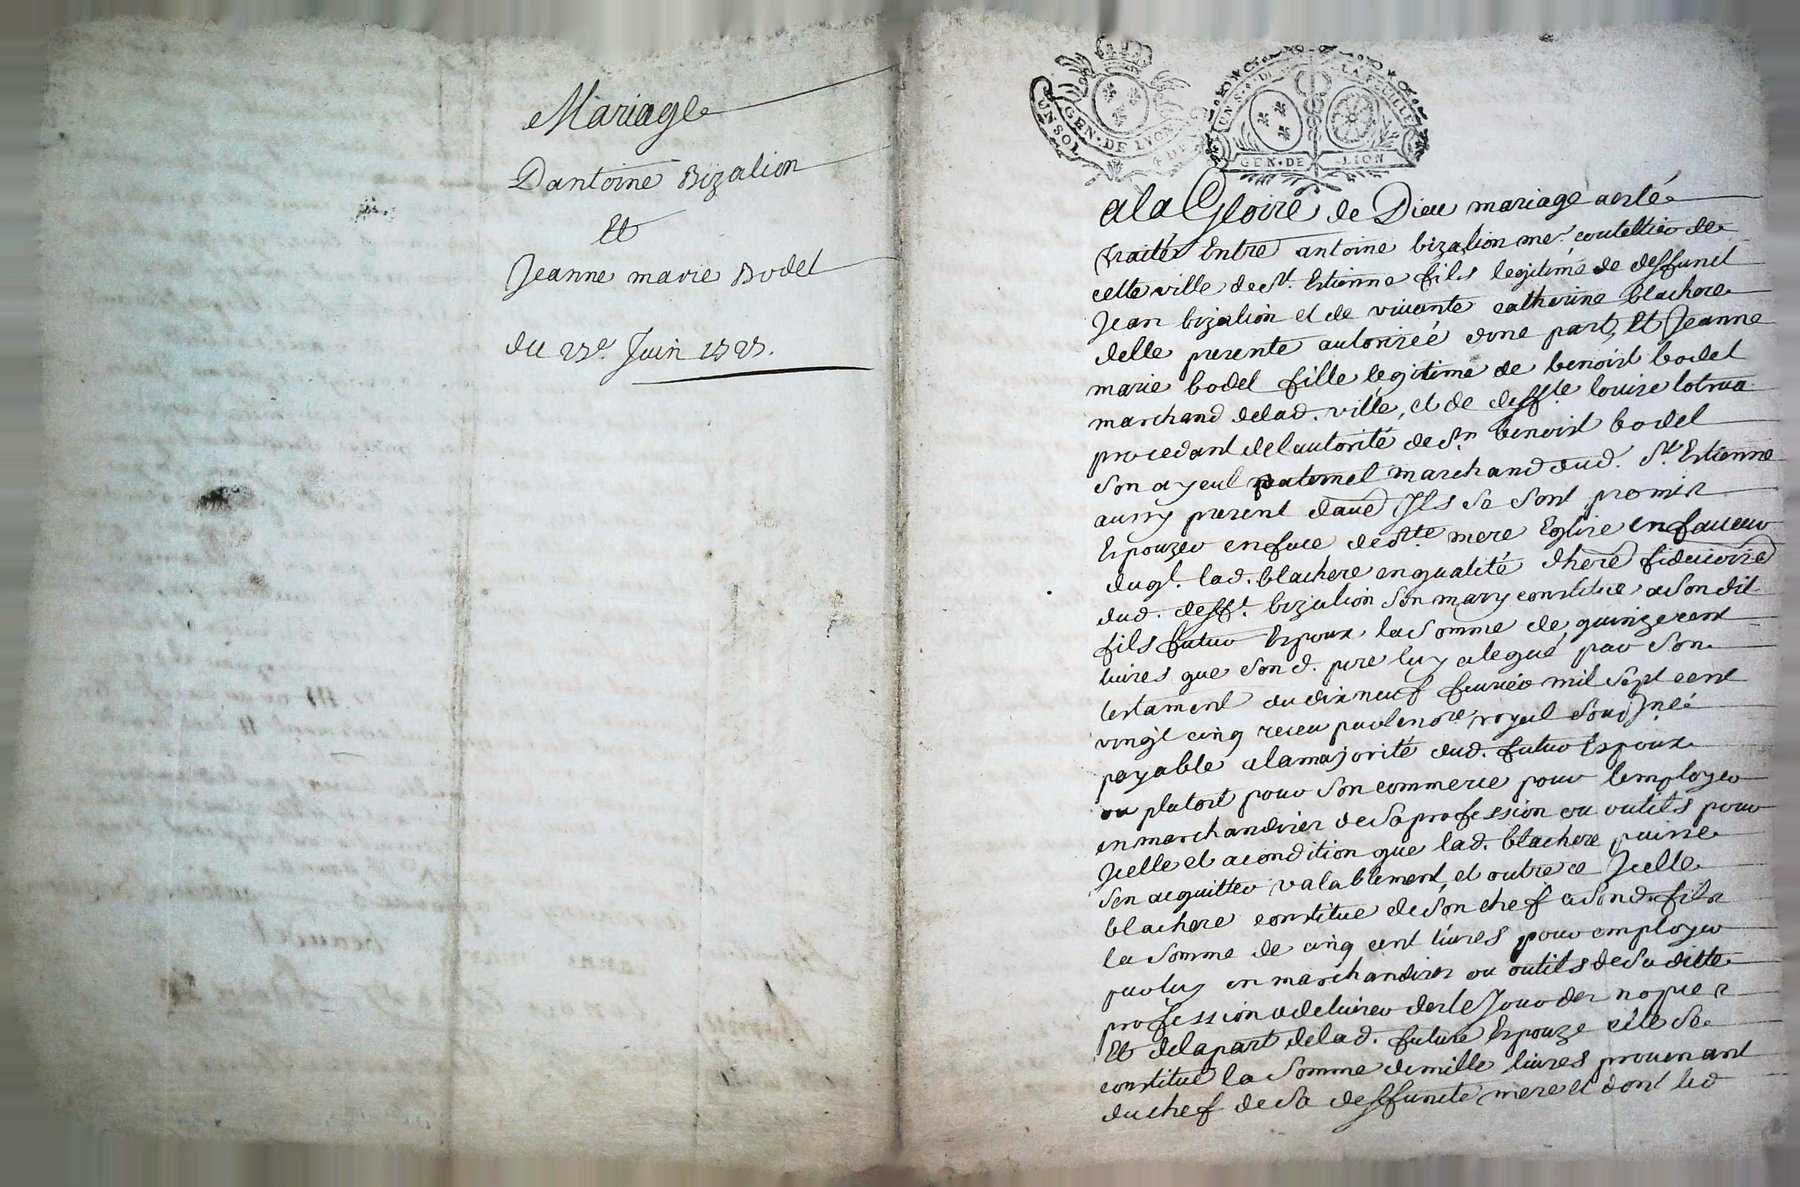 Mariage
Dantoine Bizalion
Et
Jeanne marie Bodel
du Juin
UN SOL
GEN · DE LYON
4 DE
UN S · DI LA FEUILLE
GEN · DE LION
a la Gloire de Dieu mariage a esté
traitté Entre antoine bizalion me. coutellier de
cette ville de St. Estienne fils legitime de deffunct
Jean bizalion et de vivante catherine blachere
delle presente autorizée dune part, Et Jeanne
marie bodel fille legitime de benoist bodel
marchand de lad. ville, et de defte. louise lotrua
procedant de lautorité de Sr. benoist bodel
son ayeul paternel marchand dud. St. Estienne
aussy present dautre Ils se sont promis
Espouzer en face de Ste. mere Eglise en faueur
duql. lad. blachere en qualité dhere. fiduciaire
dud. defft. bizalion son mary constitue a son dit
fils futur Espoux la somme de quinze cent
livres que son d. pere luy a legué par son
testament du dix neuf feurier mil sept cent
vingt cinq receu par le nore. royal soussigné
payable a la majorité dud. futur Espoux
ou plutost pour son commerce pour lemployer
en marchandises de sa profession ou outils pour
Icelle et a condition que lad. blachere puisse
sen acquitter valablement, et outre ce Icelle
blachere constitue de son chef a son d. fils
la somme de cinq cent livres pour employer
par luy en marchandises ou outils de sa ditte
profession a delivrer des le Jour des nopces
Et de la part de lad. future Espouze elle se
constitue la somme de mille livres provenant
du chef de sa deffuncte mere et dont led